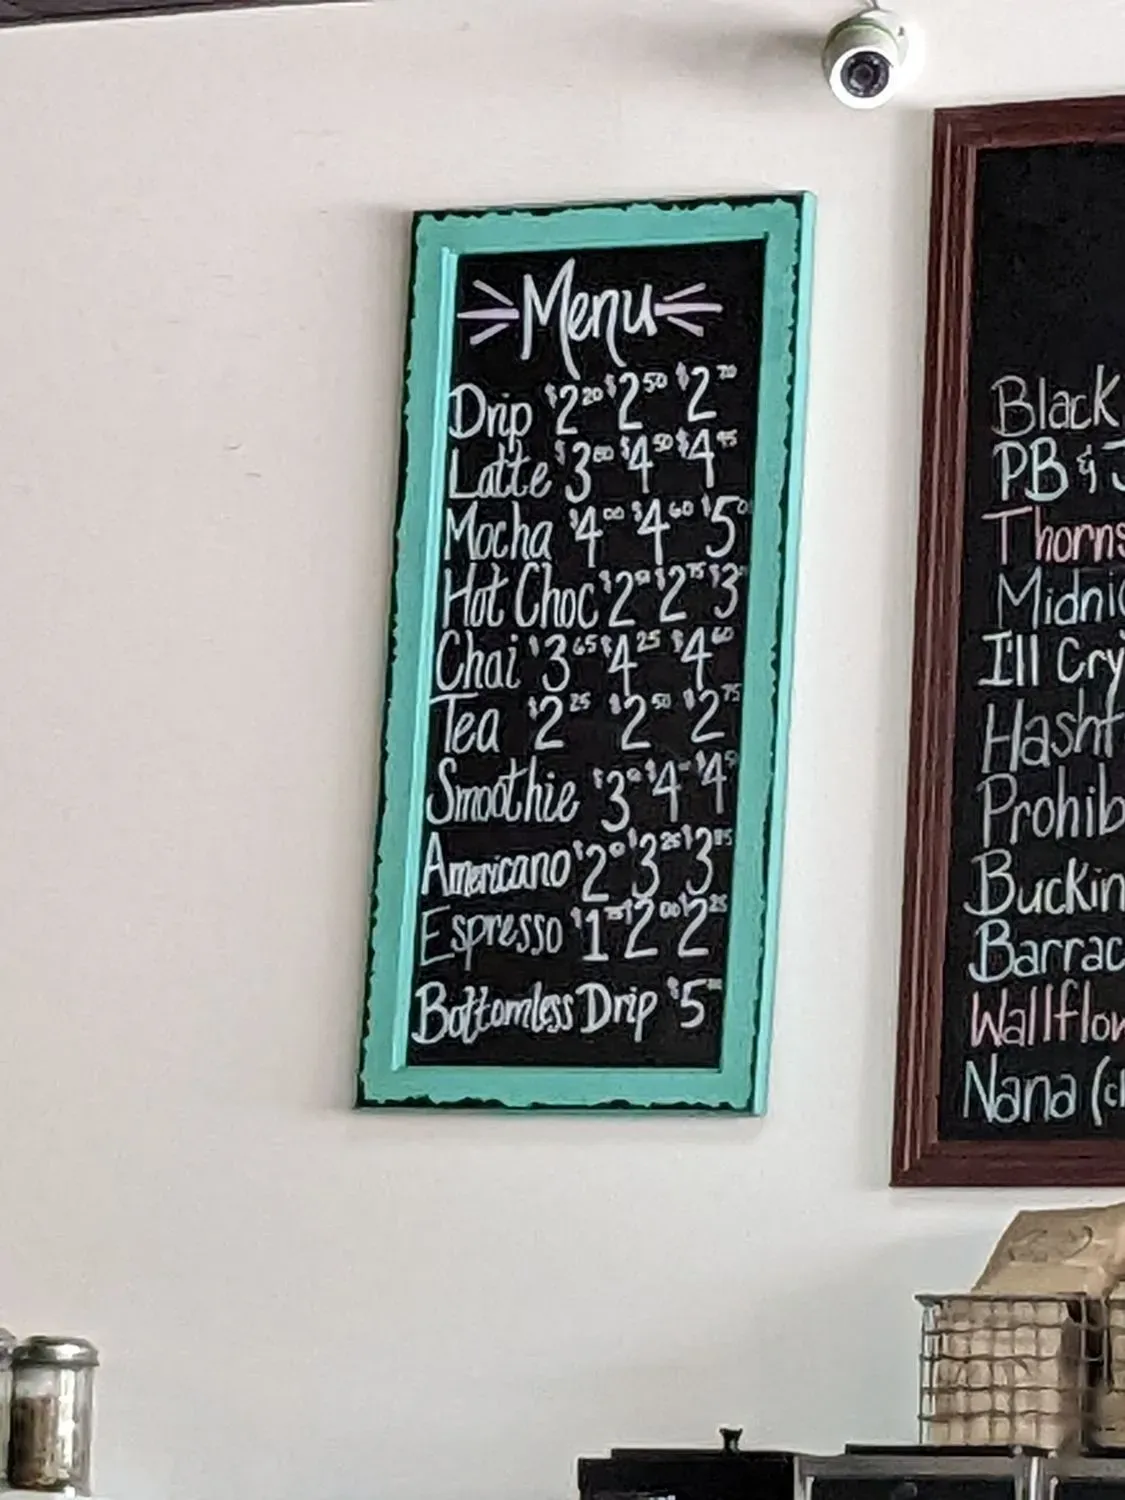 Menu
Drip $2.20 $2.50 $2.70
Latte $3.80 $4.50 $4.95
Mocha $4.00 $4.60 $5
Hot Choc $2 $2.75 $3
Chai $3.65 $4.25 $4.60
Tea $2.25 $2.50 $2.75
Smoothie $3 $4 $4
Americano $2 $3.25 $3
Espresso $1.75 $2.00 $2.25
Bottomless Drip $5
Black
PB &
Thorns
Midnic
I'll Cry
Hasht
Prohib
Buckin
Barrac
Wallflow
Nana (ch